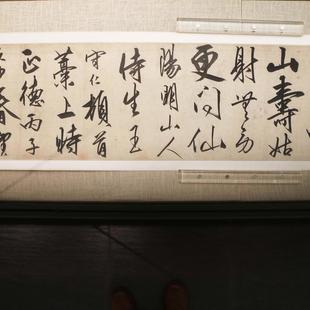 山壽姑
射無勞
更問仙
陽明山人
侍生王
守仁頓首
藁上時
正德丙子
春